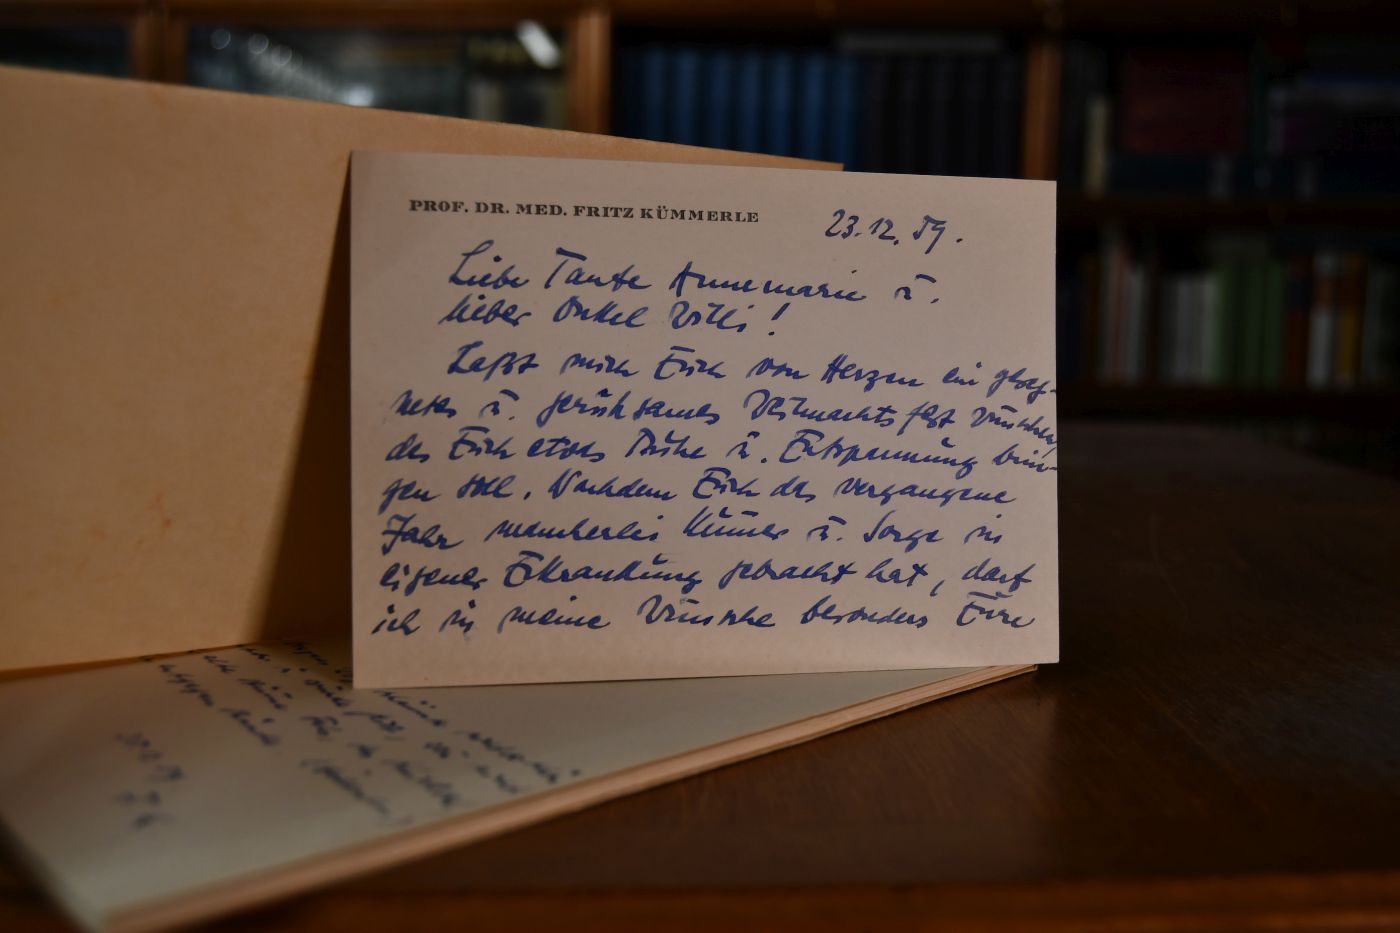 PROF. DR. MED. FRITZ KÜMMERLE
23.12.59.
Liebe Tante Annemarie u.
lieber Onkel Willi!
Laßt mich Euch von Herzen ein geseg-
netes u. geruhsames Weihnachtsfest wünschen,
das Euch etwas Ruhe u. Entspannung brin-
gen soll. Nachdem Euch das vergangene
Jahr mancherlei Kummer u. Sorge in
eigener Erkrankung gebracht hat, darf
ich in meine Wünsche besonders Eure